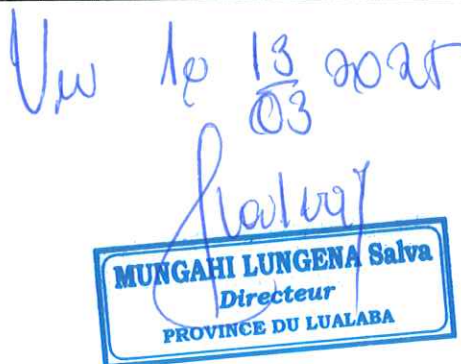 Vu le 13/03 2025
MUNGAHI LUNGENA Salva
Directeur
PROVINCE DU LUALABA